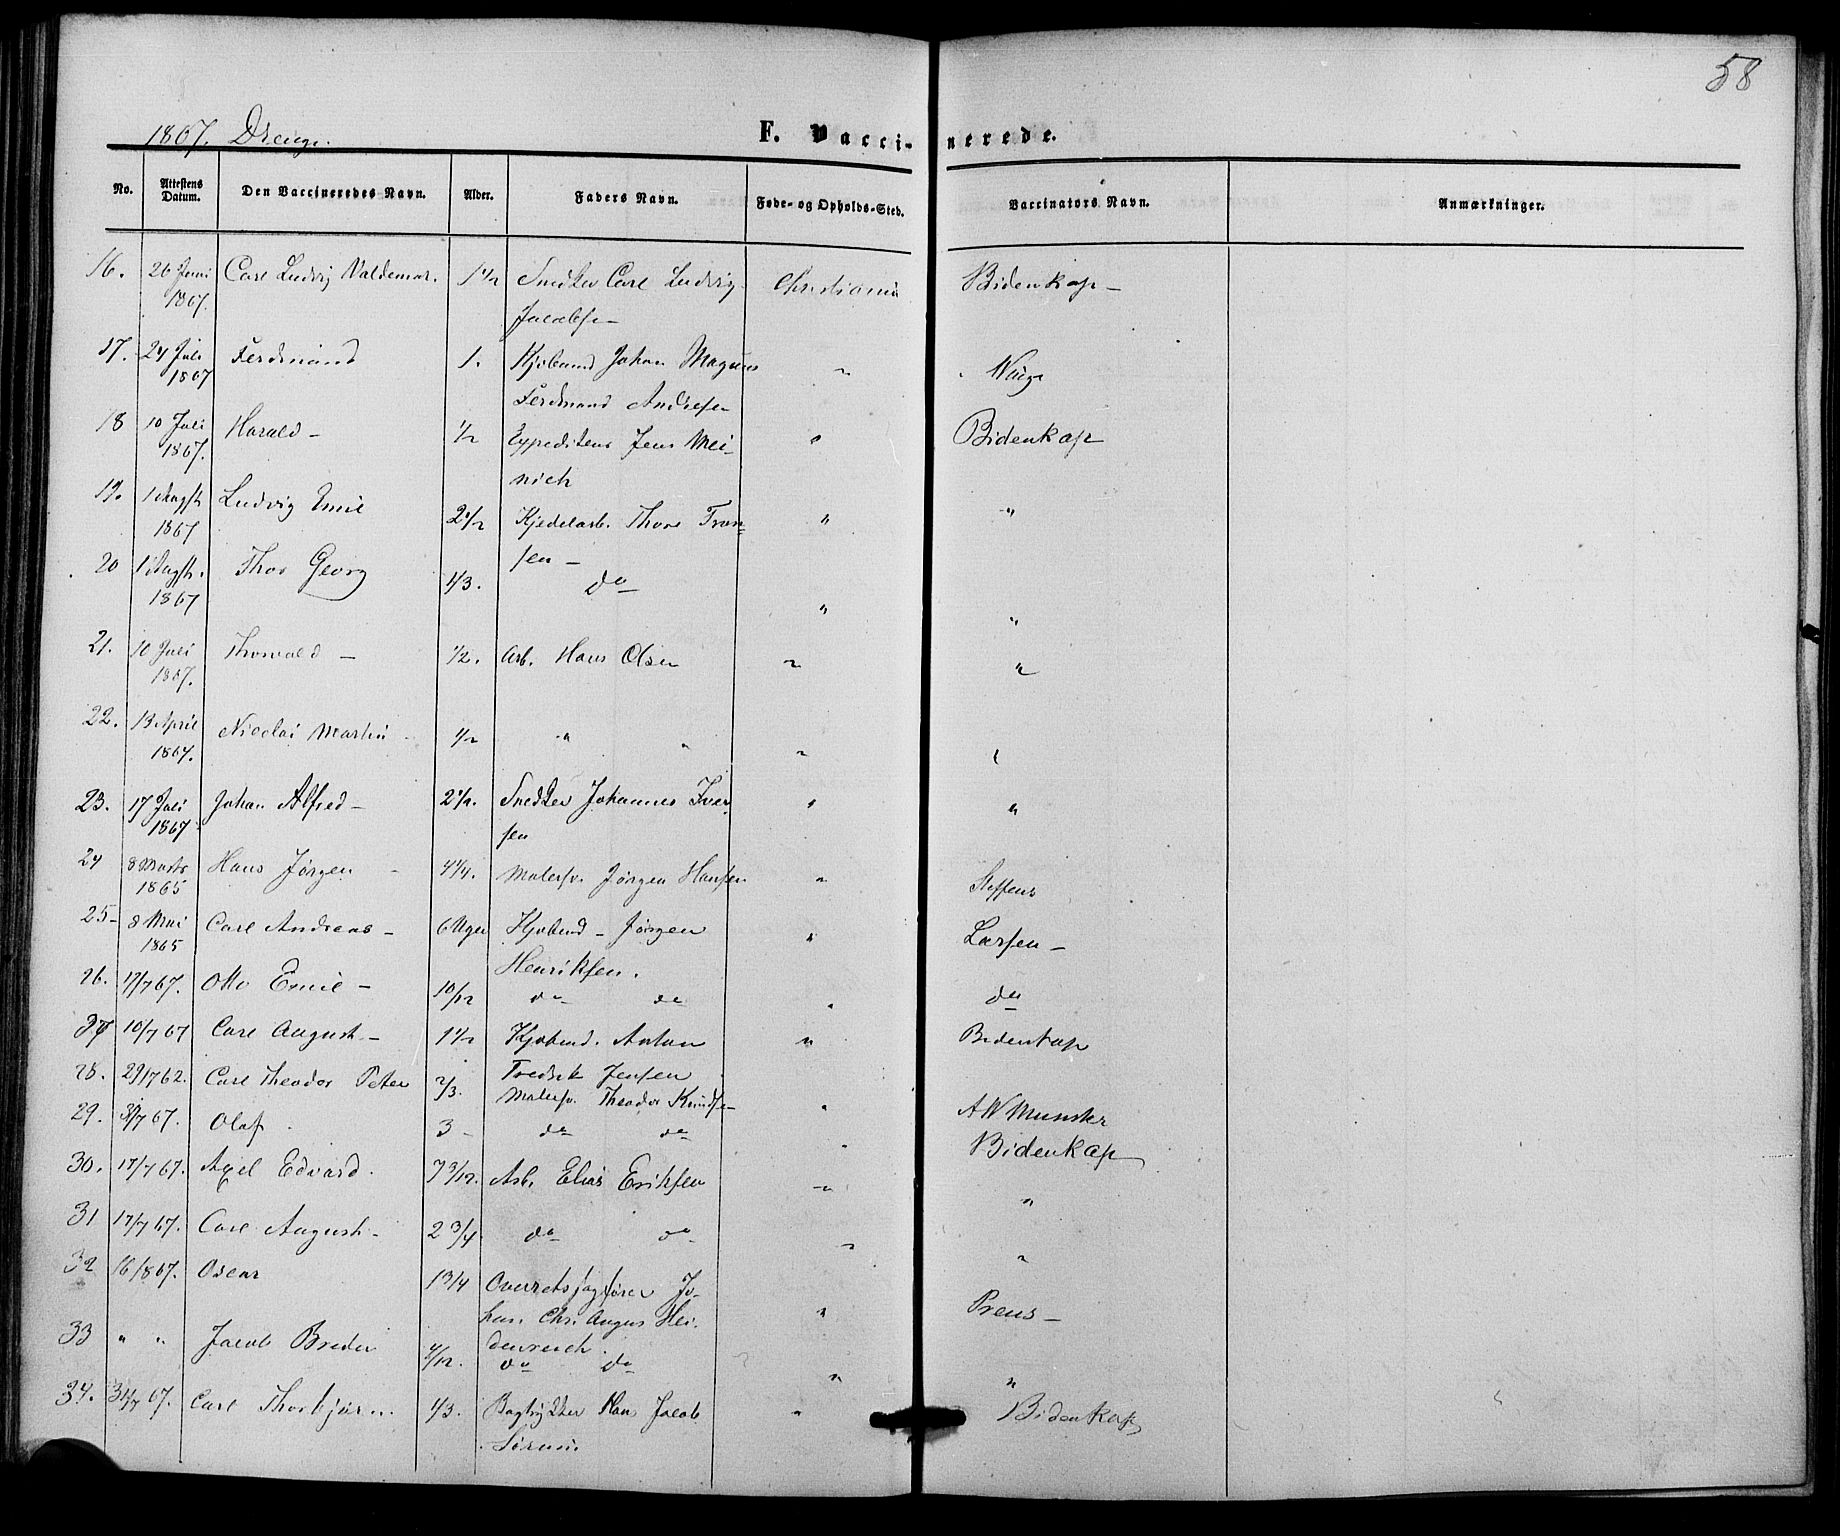 58
1867. Drenge.
F. Vaccinerede.
No. Attestens Datum. Den Vaccineredes Navn. Alder. Faders Navn. Føde- og Opholds-Sted. Vaccinators Navn. Anmærkninger.
16. 26 Juni 1867. Carl Ludvig Valdemar. 1 1/2 Snedker Carl Ludvig Christiania Bidenkap –
Jacobsen –
17. 24 Juli 1867 Ferdinand 1. Kjøbmd Johan Magnus " 
Ferdinand Andresen
18 10 Juli 1867. Harald – 1/2 Expeditens Jens Mei- " Bidenkap
nich
19. 1 Augst 1867 Ludvig Emil 2 1/2 Kjedelarb. Thore Fran- " "
sen –
20 1 Augst. 1867 Thor Georg 1/3. do " "
21. 10 Juli 1867. Thorvald – 1/2. Arb. Hans Olsen " "
22. 13 April 1867. Nicolai Martin 1/2 " " " "
23. 17 Juli 1867 Johan Alfred – 2 1/2. Snedker Johannes Iver- " "
sen
24 8 Marts 1865 Hans Jørgen – 4 1/4. Malersv. Jørgen Hansen " Steffens
25 – 8 Mai 1865 Carl Andreas – 6 Uger Kjøbmd – Jørgen " Larsen –
Henriksen.
26. 17/7 67. Otto Emil – 10/12 do do " do
27 10/7 67 Carl August – 1 1/2 Kjøbmd. Anton " Bidenkap
Fredrik Jensen
28. 29/7 62. Carl Theodor Peter 2/3. Malersv. Theodor Knudsen " AW Munster
29. 31/7 67. Olaf 3 – do do " Bidenkap
30. 17/7 67. Axel Edvard. 7 3/12. Arb. Elias Eriksen " "
31 17/7 67. Carl August – 2 3/4 do do " "
32 16/8 67. Oscar 1 3/4 Overretssagfører Jo- " Preus –
han Chr. August Hei-
denreich.
33 " " Jacob Breder 4/12. do do " "
34. 31/7 67. Carl Thorbjørn. 1/3. Bogtrykker Hans Jacob " Bidenkap
Sørum